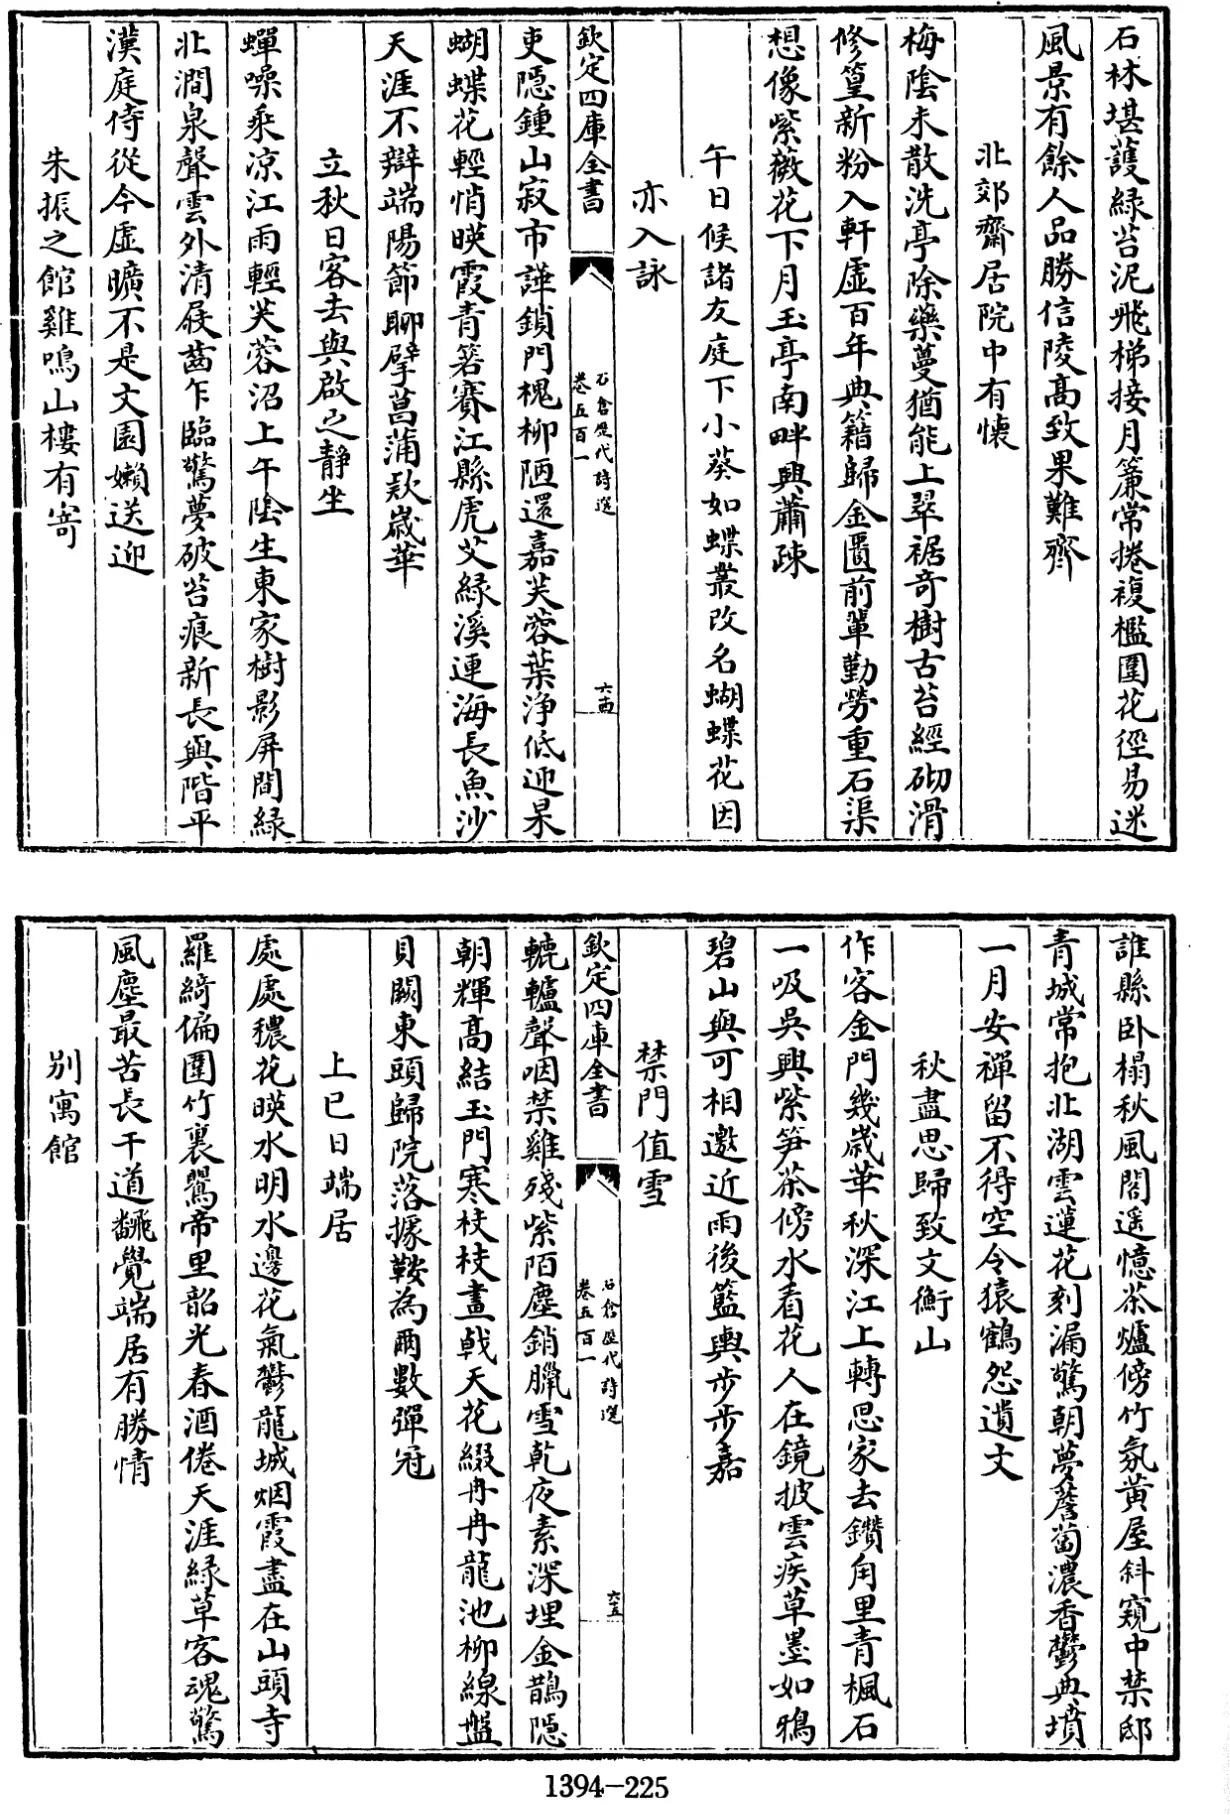 石林堪護綠苔泥飛梯接月簾常捲複檻圍花徑易迷
風景有餘人品勝信陵髙致果難齊
北郊齋居院中有懐
梅陰未散洗亭除藥蔓猶能上翠裾奇樹古苔經砌滑
修篁新粉入軒虛百年典籍歸金匱前軰勤勞重石渠
想像紫薇花下月玉亭南畔興蕭疎
午日候諸友庭下小葵如蝶叢改名蝴蝶花因
亦入詠
欽定四庫全書
石倉歴代詩選
卷五百一
六十四
吏隠鍾山寂市譁鎖門槐柳陋還嘉芙蓉葉浄低迎杲
蝴蝶花輕悄暎霞青箬賽江縣虎艾緑溪連海長魚沙
天涯不辯端陽節聊擘菖蒲欵歲華
立秋日客去與啟之靜坐
蟬噪乘凉江雨輕芙蓉沼上午陰生東家樹影屏間緑
北澗泉聲雲外清屐齒乍臨驚夢破苔痕新長與階平
漢庭侍從今虛曠不是文園嬾送迎
朱振之館雞鳴山樓有寄
誰縣卧榻秋風閣遥憶茶爐傍竹氛黄屋斜窺中禁邸
青城常抱北湖雲蓮花刻漏驚朝夢薝蔔濃香鬱典墳
一月安禪留不得空令猿鶴怨遺文
秋盡思歸致文衡山
作客金門幾歲華秋深江上轉思家去鑽甪里青楓石
一吸吳興紫笋茶傍水看花人在鏡披雲疾草墨如鴉
碧山與可相邀近雨後籃輿步步嘉
禁門值雪
欽定四庫全書
石倉歴代詩選
卷五百一
六十五
轆轤聲咽禁雞殘紫陌塵銷臘雪乾夜素深埋金鵲隠
朝輝髙結玉門寒枝枝畫㦸天花綴冉冉龍池柳線盤
貝闕東頭歸院落據鞍為爾數彈冠
上巳日端居
處處穠花暎水明水邊花氣鬱龍城烟霞盡在山頭寺
羅綺偏圍竹裏鸎帝里韶光春酒倦天涯緑草客魂驚
風塵最苦長干道飜覺端居有勝情
别寓館
1394-225